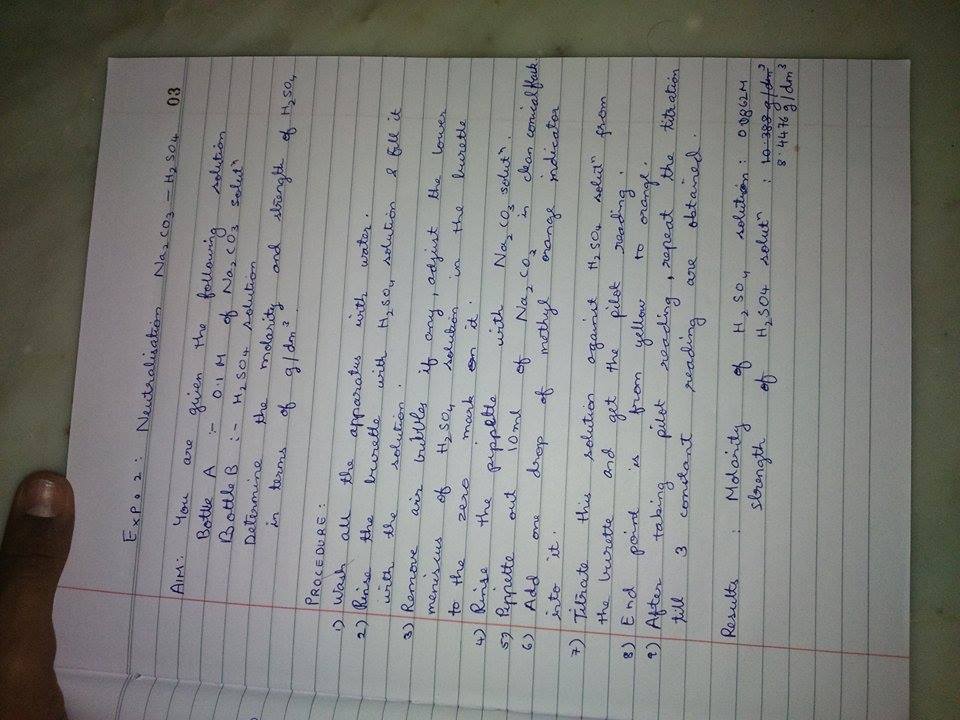 03
EXP. 2: Neutralisation Na2CO3 – H2SO4
AIM: You are given the following solution
Bottle A :- 0.1 M of Na2CO3 solutⁿ
Bottle B :- H2SO4 solution
Determine the molarity and strength of H2SO4
in terms of g/dm³.
PROCEDURE:
1) Wash all the apparatus with water.
2) Rinse the burette with H2SO4 solution & fill it
with the solution.
3) Remove air bubbles if any, adjust the lower
meniscus of H2SO4 solution in the burette
to the zero mark on it.
4) Rinse the pippette with Na2CO3 solutⁿ.
5) Pippette out 10ml of Na2CO3 in clean conical flask
6) Add one drop of methyl orange indicator
into it.
7) Titrate this solution against H2SO4 solutⁿ from
the burette and get the pilot reading.
8) End point is from yellow to orange.
9) After taking pilot reading, repeat the titration
till 3 constant reading are obtained.
Results : Molarity of H2SO4 solution : 0.0862M
strength of H2SO4 solutⁿ : 10.388 g/dm³
8.4476 g/dm³